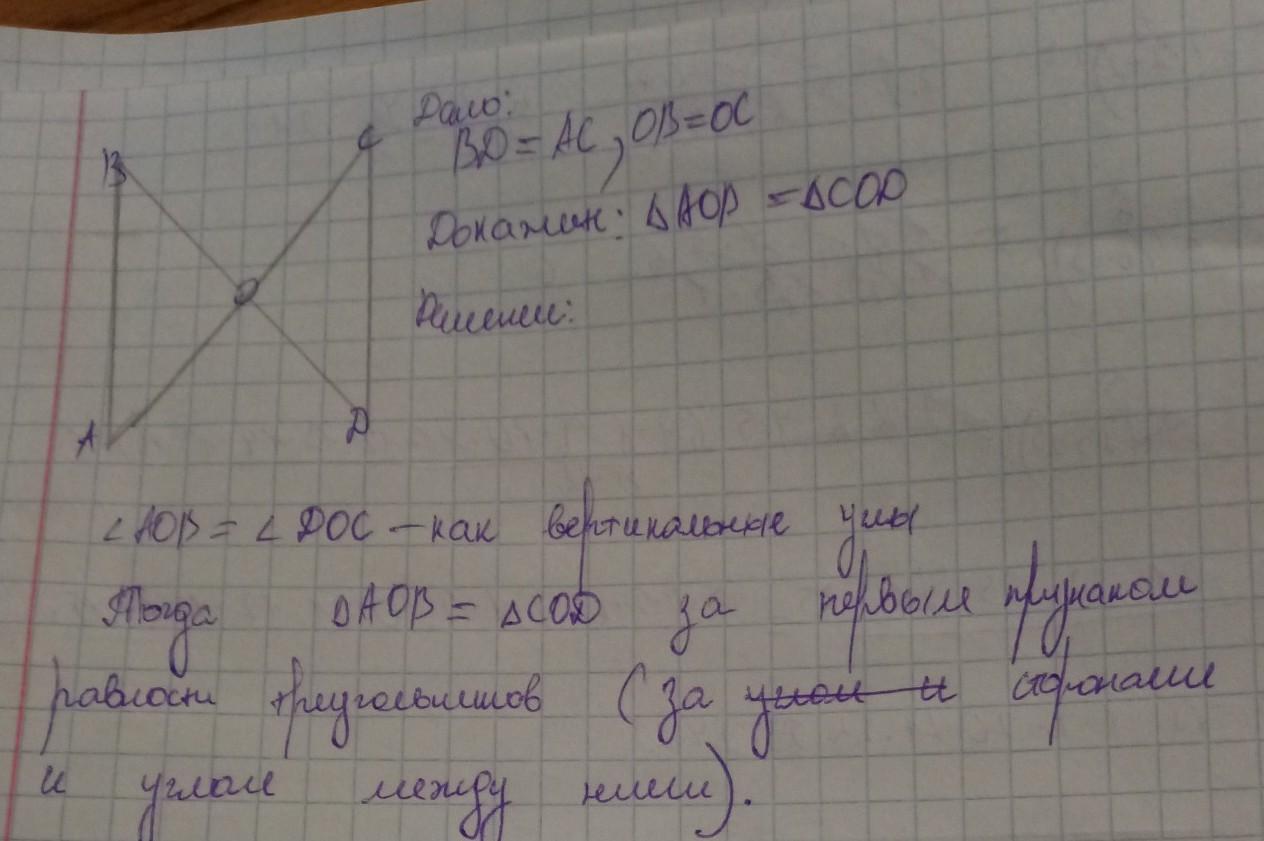 B
C
O
A
D
Дано:
BD = AC, OB = OC
Докажи: ΔAOB = ΔCOD
Решение:
∠AOB = ∠DOC – как вертикальные углы
Тогда ΔAOB = ΔCOD за первым признаком
равности треугольников (за углом и сторонами
и углом между ними).